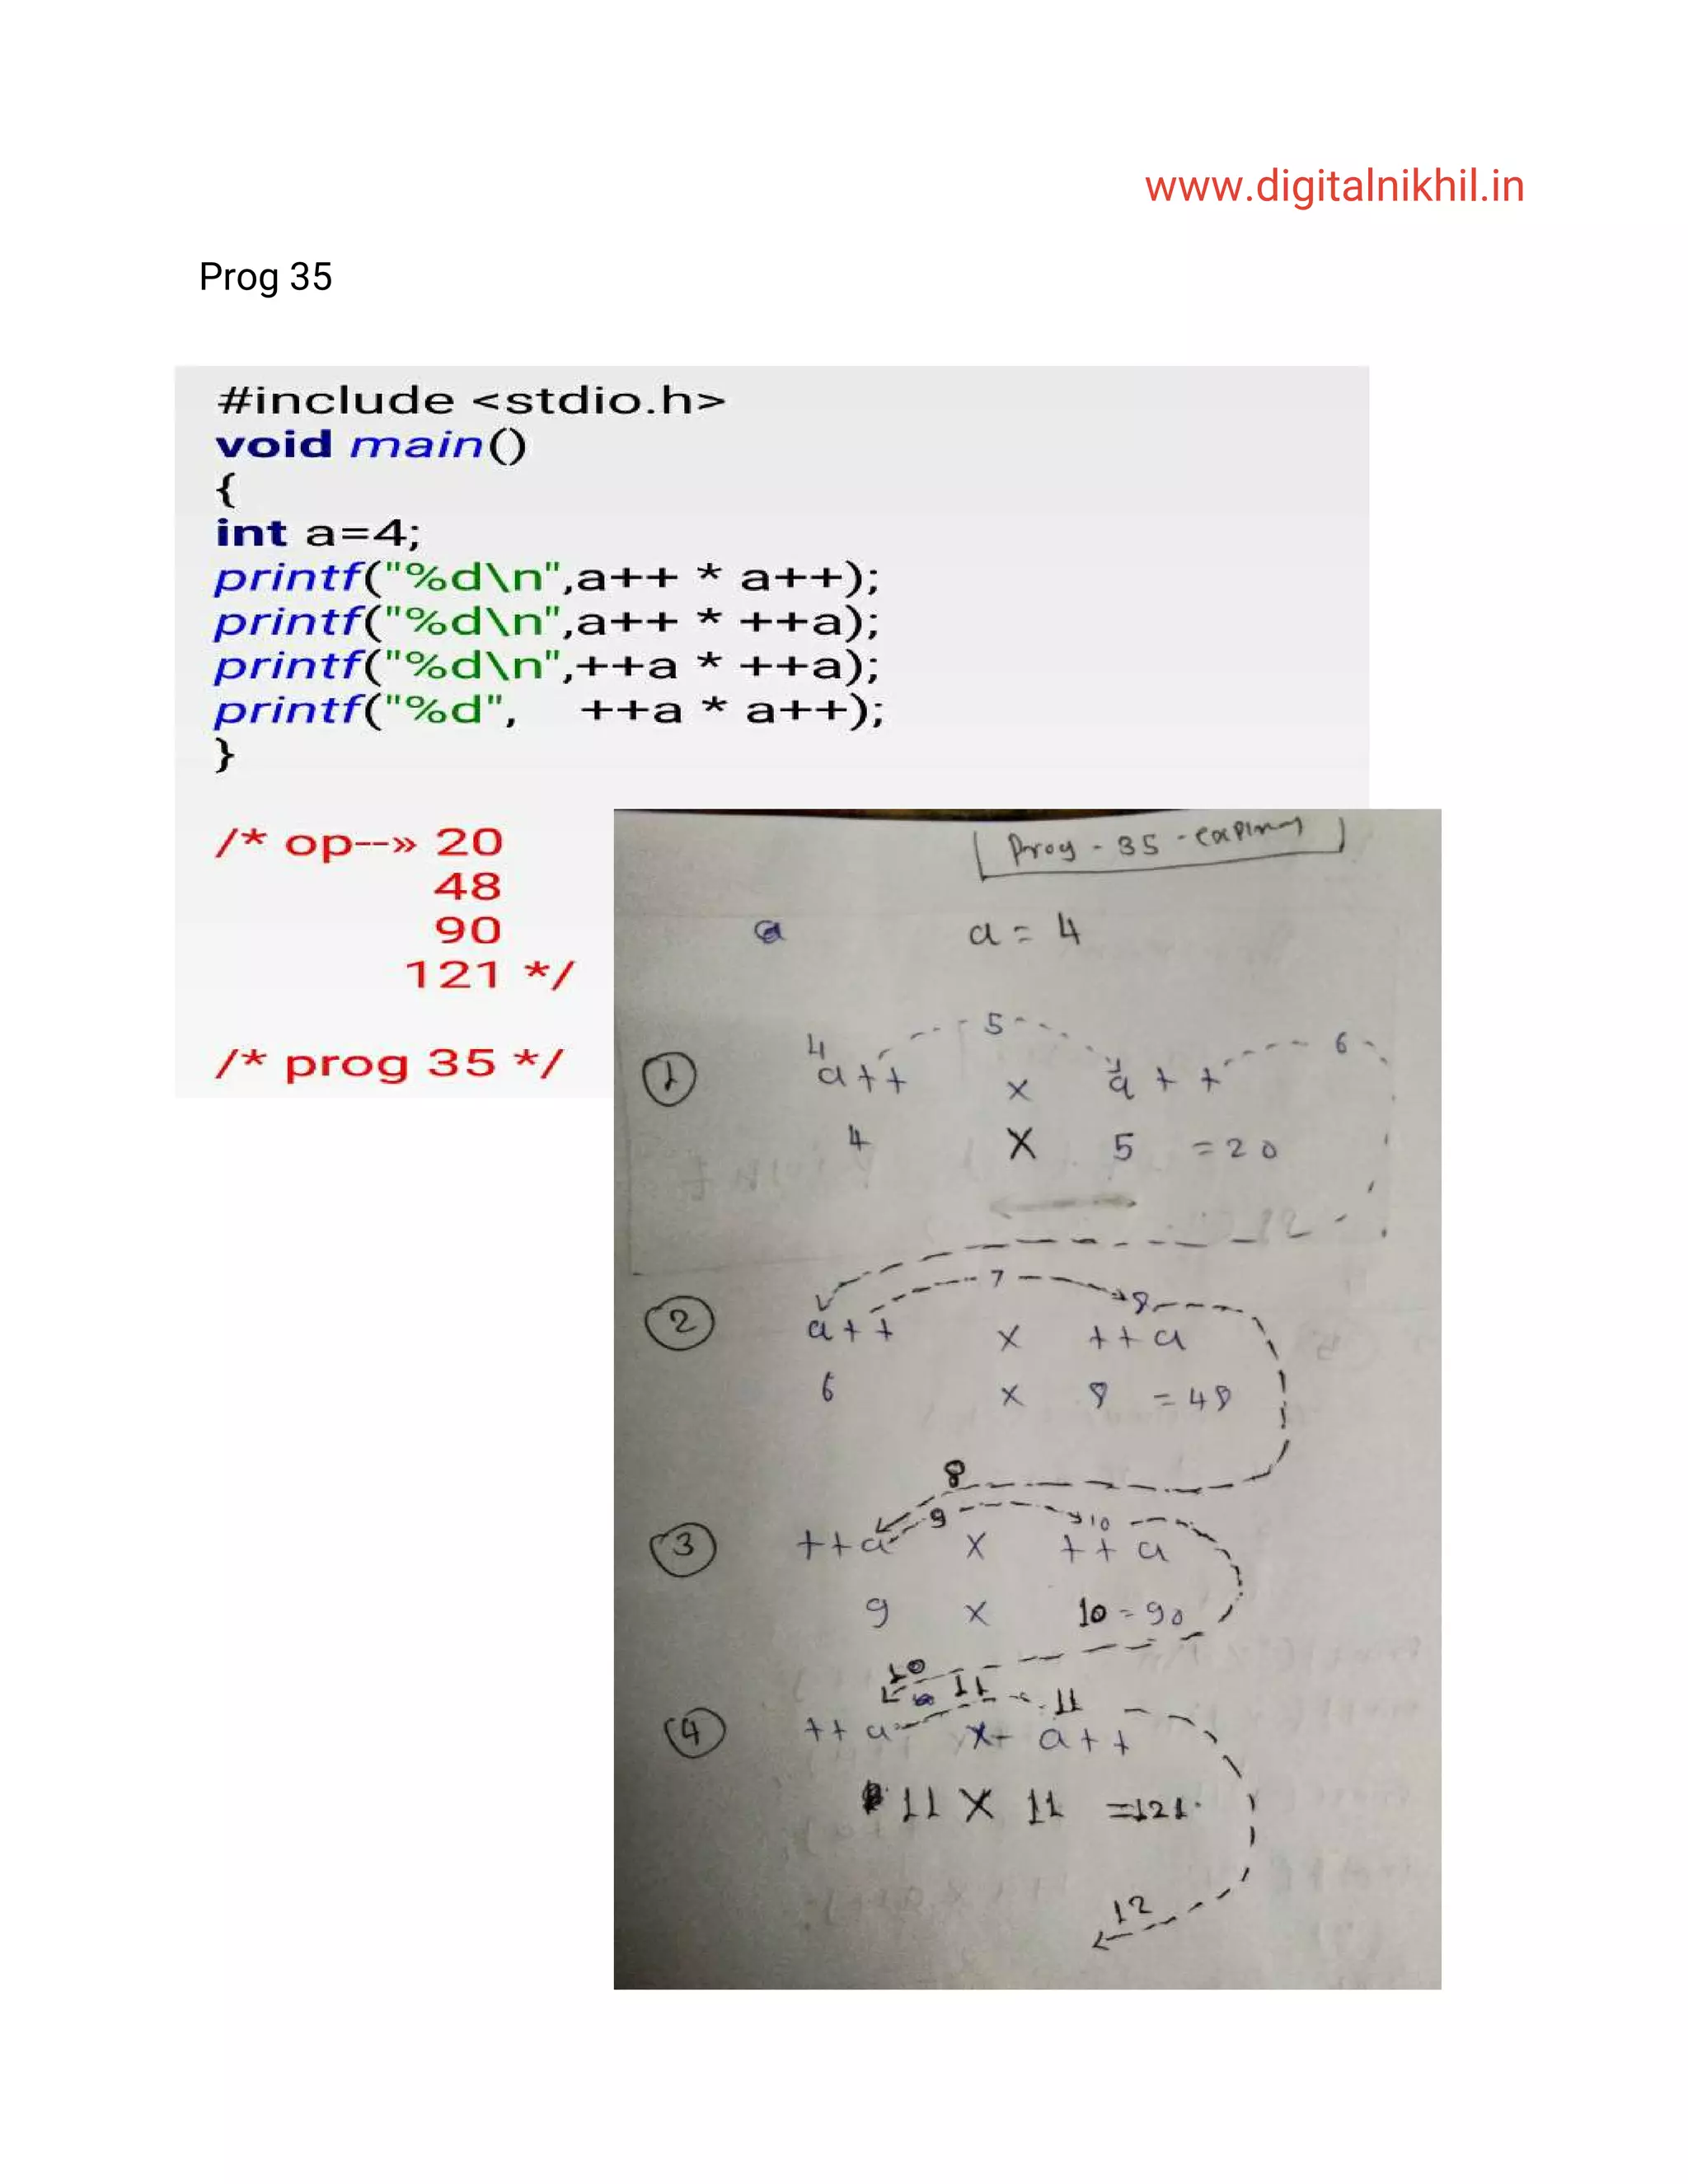 www.digitalnikhil.in
Prog 35
#include <stdio.h>
void main()
{
int a=4;
printf("%d\n",a++ * a++);
printf("%d\n",a++ * ++a);
printf("%d\n",++a * ++a);
printf("%d",   ++a * a++);
}
/* op--» 20
48
90
121 */
/* prog 35 */
Prog - 35 -
a = 4
5
4 6
1 a++ x a++
4 x 5 = 20
7 8
2 a++ x ++a
6 x 8 = 48
8
9 10
3 ++a x ++a
9 x 10 = 90
10 11 11
4 ++a x a++
11 x 11 = 121
12